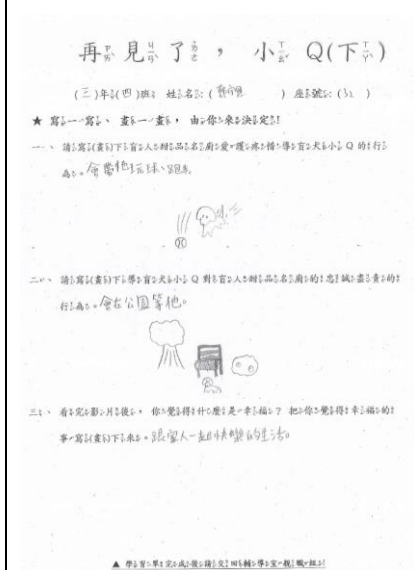 再見了，小Q(下)
(三)年(四)班 姓名:( ) 座號:(32 )
★ 寫一寫、畫一畫，由你來決定!
一、 請寫(畫)下盲人甜品名廚愛護疼惜導盲犬小Q的行
為。會帶牠玩球、跑步。
二、 請寫(畫)下導盲犬小Q對盲人甜品名廚的忠誠盡責的
行為。會在公園等牠。
三、 看完影片後，你覺得什麼是幸福? 把你覺得幸福的
事寫(畫)下來。跟家人一起快樂的生活。
▲ 學習單完成後請交回輔導室親職組!